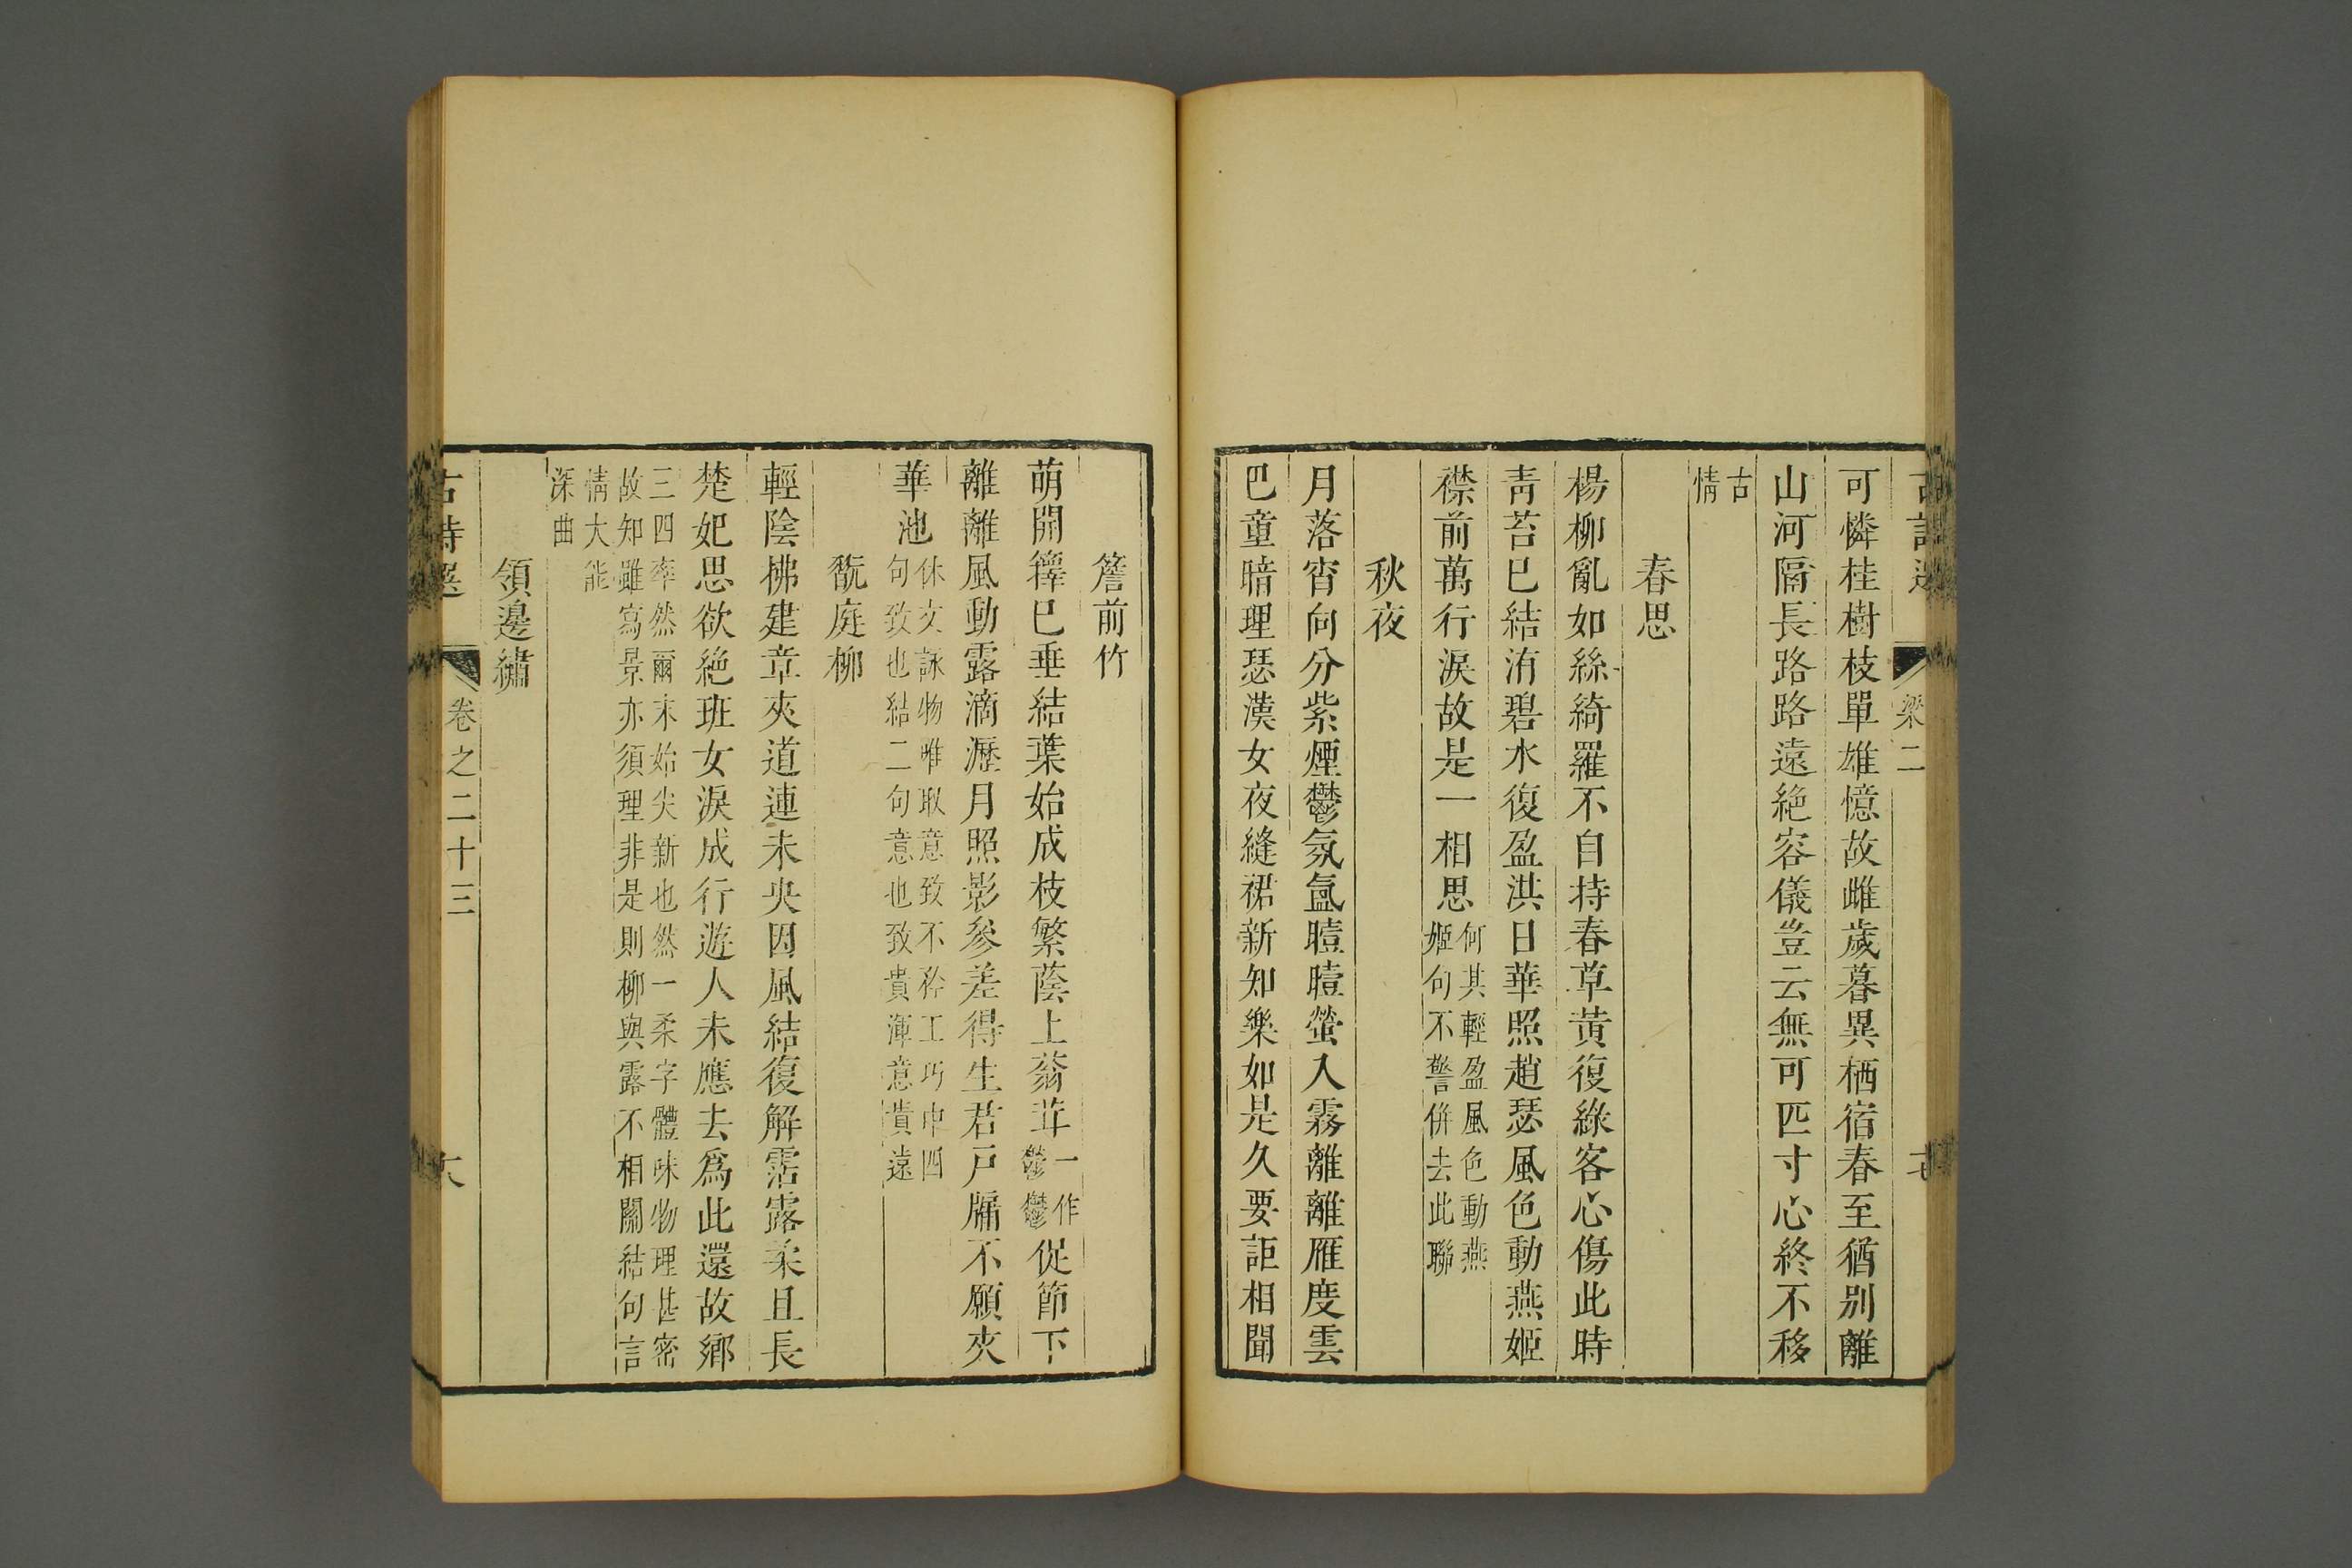 梁二
可憐桂樹枝單雄憶故雌歲暮異栖宿春至猶别離
山河隔長路路遠絶容儀豈云無可匹寸心終不移
古
情
春思
楊柳亂如絲綺羅不自持春草黄復綠客心傷此時
青苔已結洧碧水復盈淇日華照趙瑟風色動燕姬
襟前萬行淚故是一相思
何其輕盈風色動燕
姬句不警併去此聯
秋夜
月落宵向分紫煙鬱氛氳曀曀螢入霧離離雁度雲
巴童暗理瑟漢女夜縫裙新知樂如是久要詎相聞
簷前竹
萌開籜已垂結葉始成枝繁蔭上蓊茸
一作
鬱鬱
促節下
離離風動露滴瀝月照影參差得生君戸牖不願夾
華池
休文詠物唯取意致不矜工巧中四
句致也結二句意也致貴渾意貴遠
翫庭柳
輕陰拂建章夾道連未央因風結復解霑露柔且長
楚妃思欲絶班女淚成行遊人未應去為此還故鄉
三四率然爾末始尖新也然一柔字體味物理甚密
故知雖寫景亦須理非是則柳與露不相關結句言
情大能
深曲
領邊繡
古詩選
卷之二十三